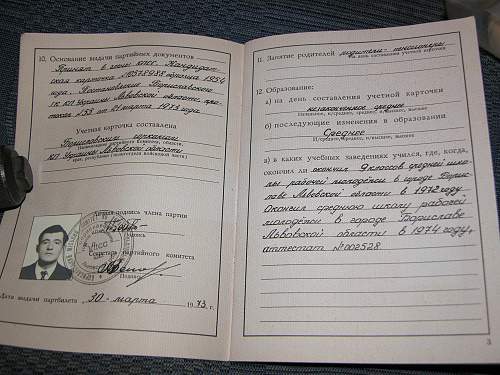 10. Основание выдачи партийных документов
Принят в члены КПСС. Кандидат-
ская карточка №10378988 образца 1954
года. Постановление Бориславского
ГК КП Украины Львовской области, про-
токол §53 от 21 марта 1973 года
Учетная карточка составлена
Бориславским горкомом
КП Украины Львовской области
Личная подпись члена партии
Секретарь партийного комитета
Дата выдачи партбилета „30“ марта 1973 г.
11. Занятие родителей родители-пенсионеры
на день составления учетной карточки
12. Образование:
а) на день составления учетной карточки
незаконченное среднее
Н/среднее, среднее, н/высшее, высшее
б) последующие изменения в образовании
Среднее
Н/среднее, среднее, н/высшее, высшее
в) в каких учебных заведениях учился, где, когда,
окончил ли окончил 9 классов средней шко-
лы рабочей молодёжи в городе Борис-
лаве Львовской области в 1972 году
Окончил среднюю школу рабочей
молодёжи в городе Бориславе
Львовской области в 1974 году,
аттестат №002528.
3